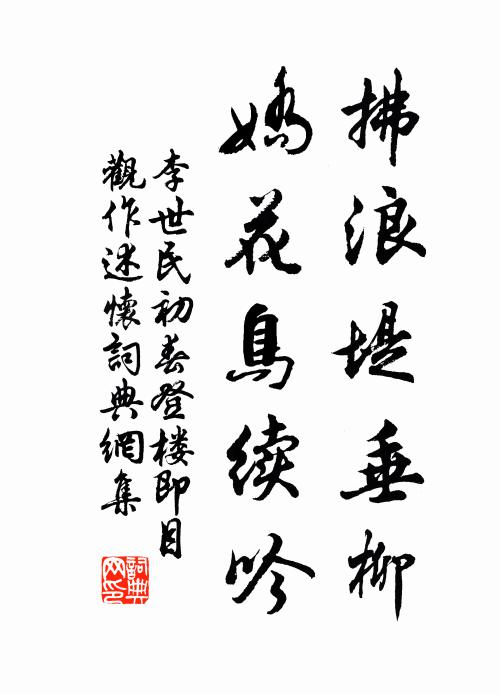 拂浪堤垂柳
嬌花鳥续吟
李世民初春登楼即目
觀作述懷詞典網集
詞典网印